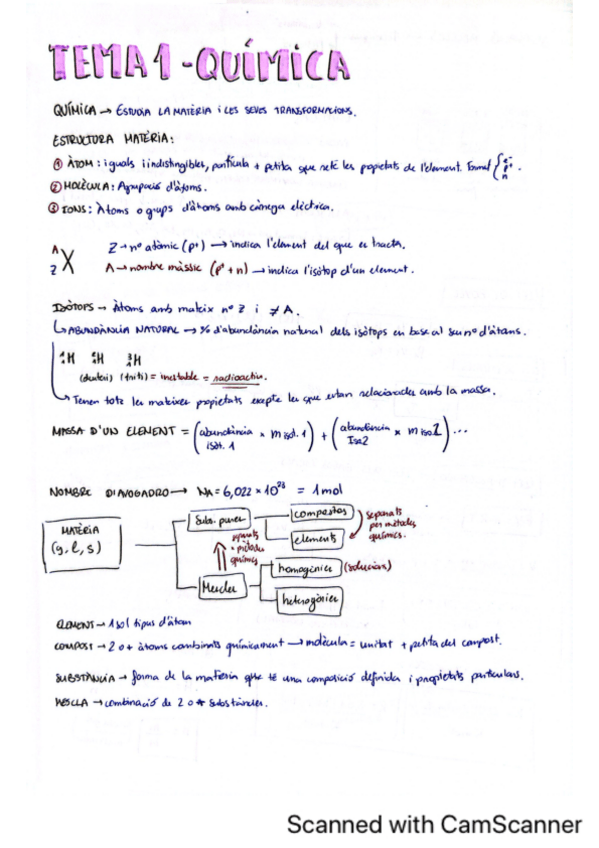 TEMA 1 - QUÍMICA
QUÍMICA → ESTUDIA LA MATÈRIA i LES SEVES TRANSFORMACIONS.
ESTRUCTURA MATÈRIA:
① ÀTOM: iguals i indistingibles, partícula + petita que reté les propietats de l'element. Format { e⁻ p⁺ n .
② MOLÈCULA: Agrupació d'àtoms.
③ IONS: Àtoms o grups d'àtoms amb càrrega elèctrica.
A
Z X
Z → nº atòmic (p⁺) → indica l'element del que es tracta.
A → nombre màssic (p⁺ + n) → indica l'isòtop d'un element.
ISÒTOPS → Àtoms amb mateix nº Z i ≠ A.
↳ ABUNDÀNCIA NATURAL → % d'abundància natural dels isòtops en base al seu nº d'àtoms.
¹₁H ²₁H ³₁H
(deuteri) (triti) = inestable = radioactiu.
↳ Tenen tots les mateixes propietats excepte les que estan relacionades amb la massa.
MASSA D'UN ELEMENT = (abundància isòt. 1 × m isò. 1) + (abundància Iso2 × m iso2) ...
NOMBRE D'AVOGADRO → NA = 6,022 × 10²³ = 1 mol
MATÈRIA
(g, l, s)
Subs. pures
compostos
elements
separats per mètodes químics.
Mescles
homogènies (solucions)
heterogènies
ELEMENT → 1 sol tipus d'àtom
COMPOST → 2 o + àtoms combinats químicament → molècula = unitat + petita del compost.
SUBSTÀNCIA → forma de la matèria que té una composició definida i propietats particulars.
MESCLA → combinació de 2 o + substàncies.
Scanned with CamScanner